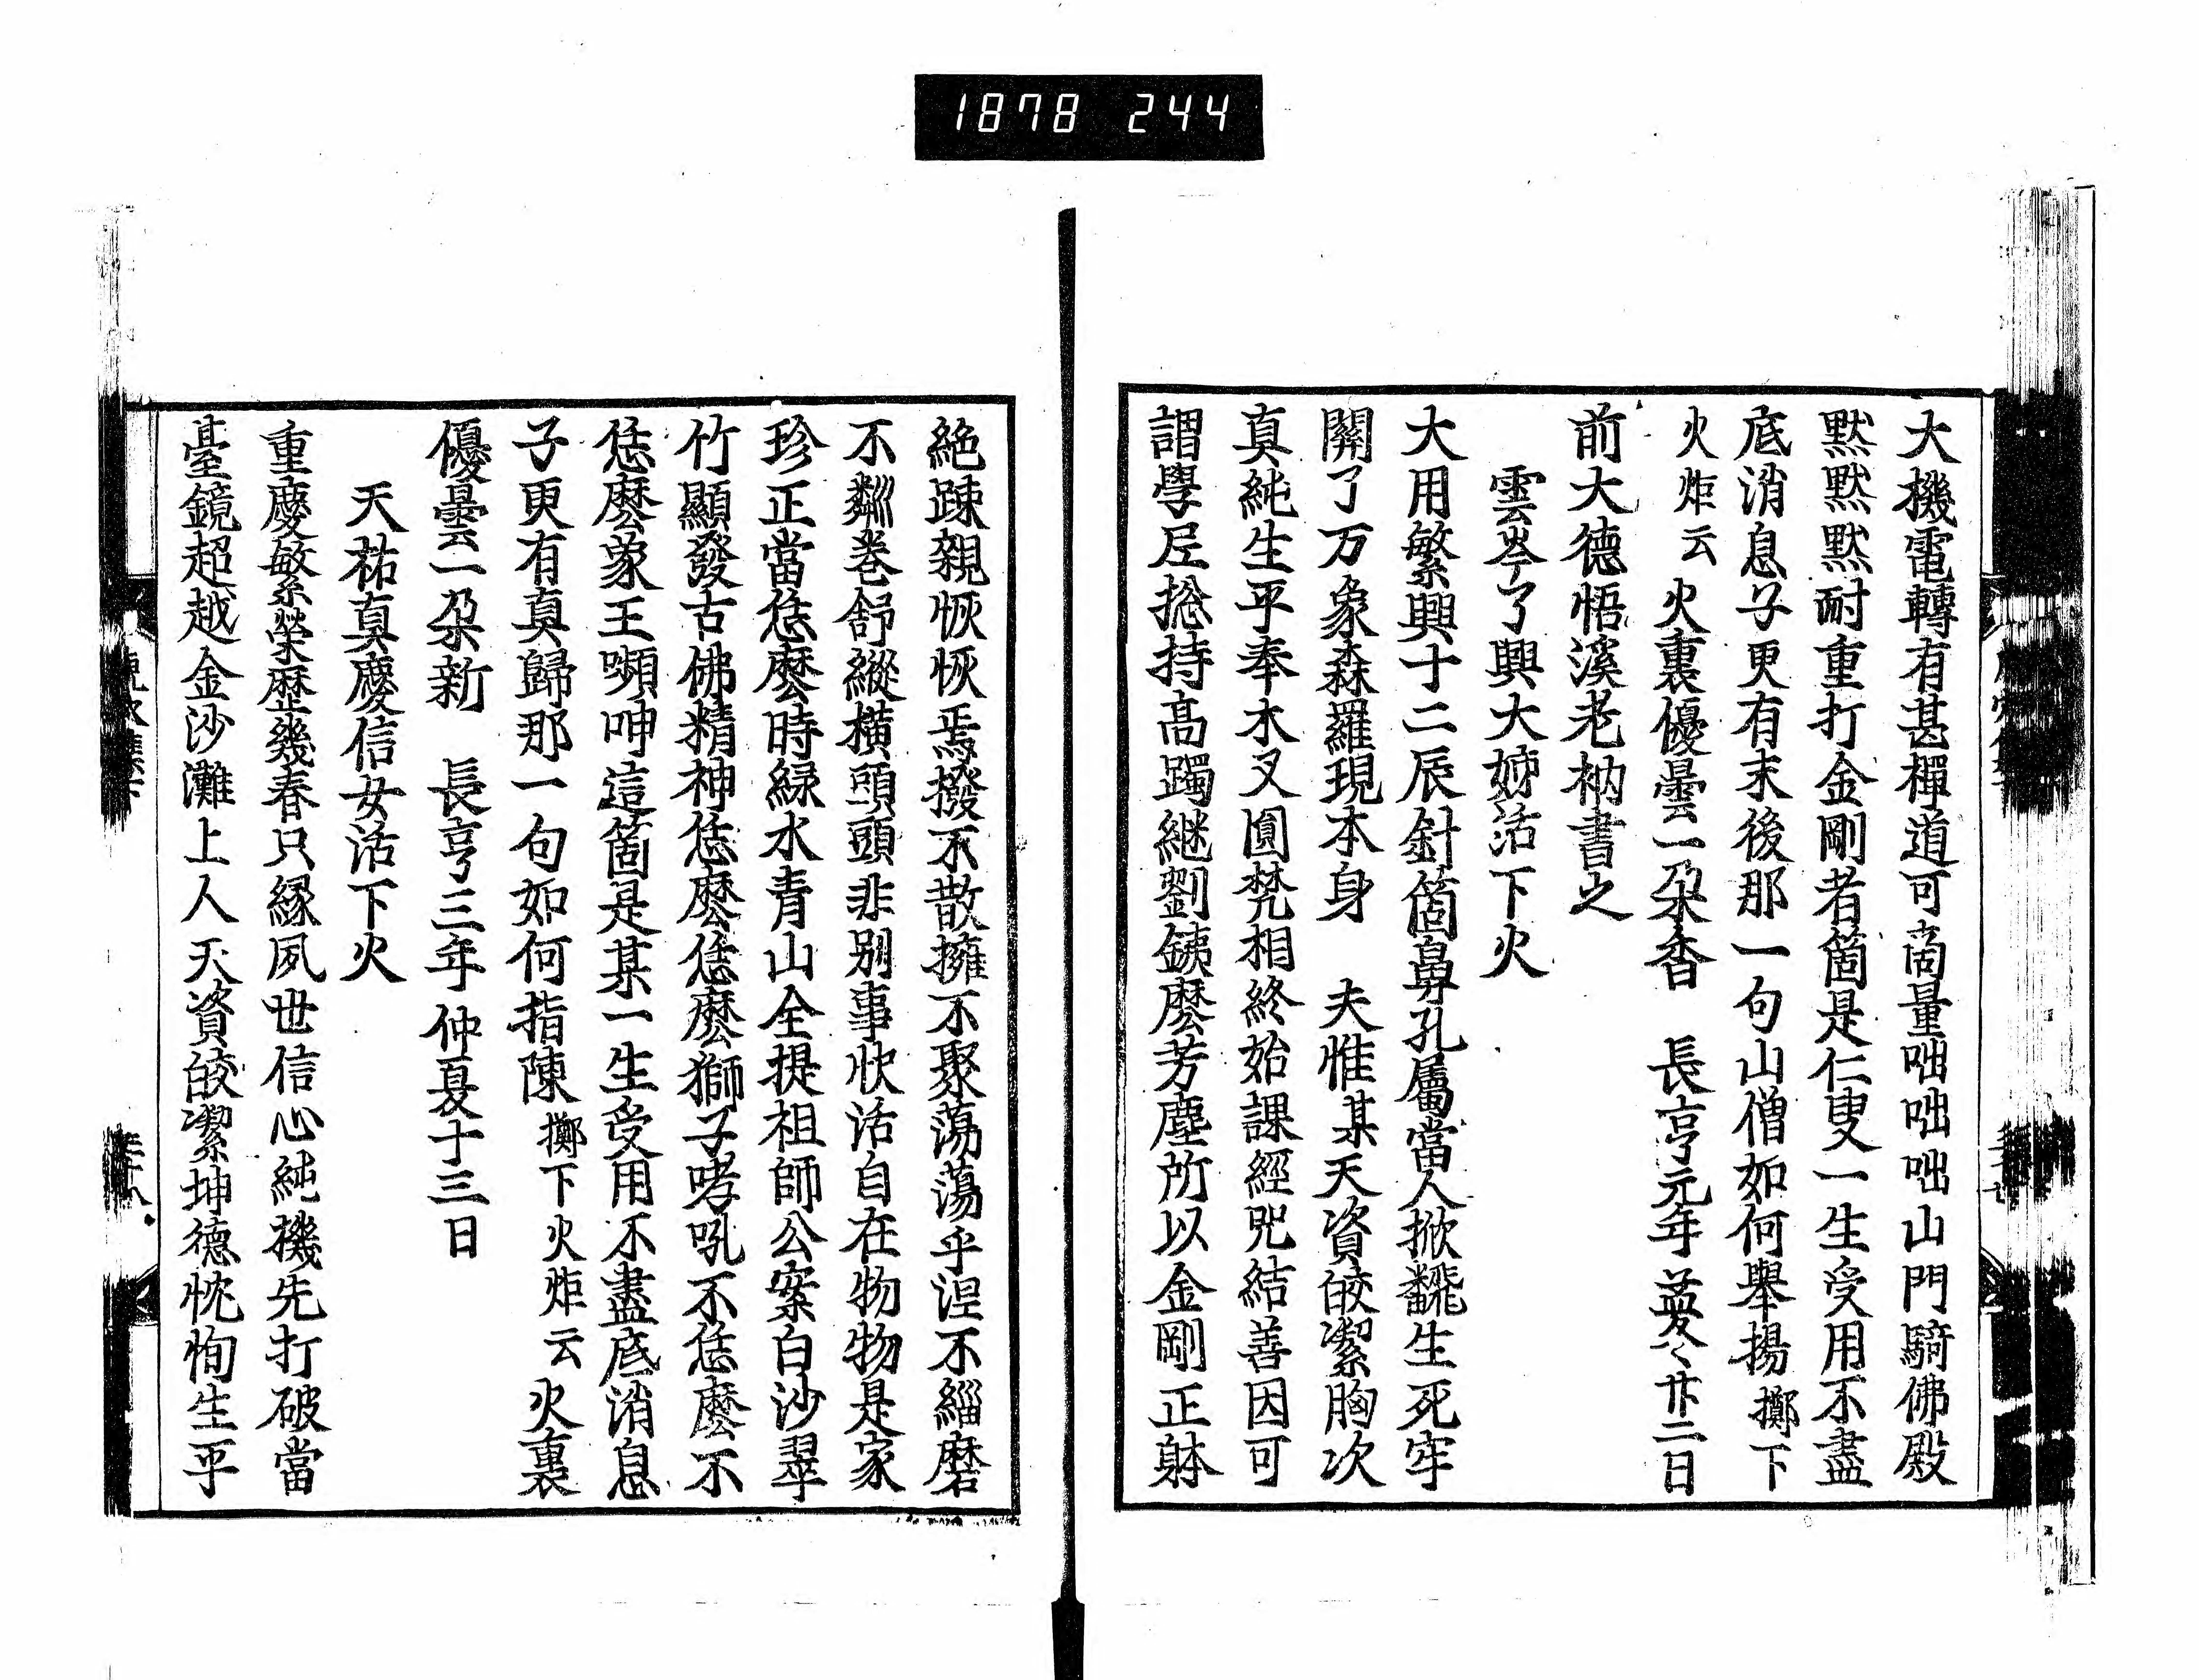 1878 244
大機電轉有甚禪道可商量咄咄咄山門騎佛殿
黙黙黙耐重打金剛者箇是仁叟一生受用不盡
底消息子更有末後那一句山僧如何舉揚擲下
火炬云 火裏優曇一朶香 長亨元年 卄二日
前大德悟溪老衲書之
雲岑了興大姉活下火
大用繁興十二辰針箇鼻孔屬當人掀飜生死牢
關了万象森羅現本身 夫惟某天資皎潔胸次
真純生平奉木叉圓梵相終始課經咒結善因可
謂學尼捴持高躅継劉銕麽芳塵所以金剛正躰
絶踈親恢恢焉撥不散擁不聚蕩蕩乎涅不緇磨
不粼卷舒縱橫頭頭非别事快活自在物物是家
珍正當恁麽時緑水青山全提祖師公案白沙翠
竹顯發古佛精神恁麽恁麽獅子哮吼不恁麽不
恁麽象王嚬呻這箇是某一生受用不盡底消息
子更有真歸那一句如何指陳擲下火炬云 火裏
優曇一朶新 長亨三年仲夏十三日
天祐真慶信女活下火
重慶敏系榮歴幾春只縁夙世信心純機先打破當
臺鏡超越金沙灘上人天資皎潔坤德忱恂生平